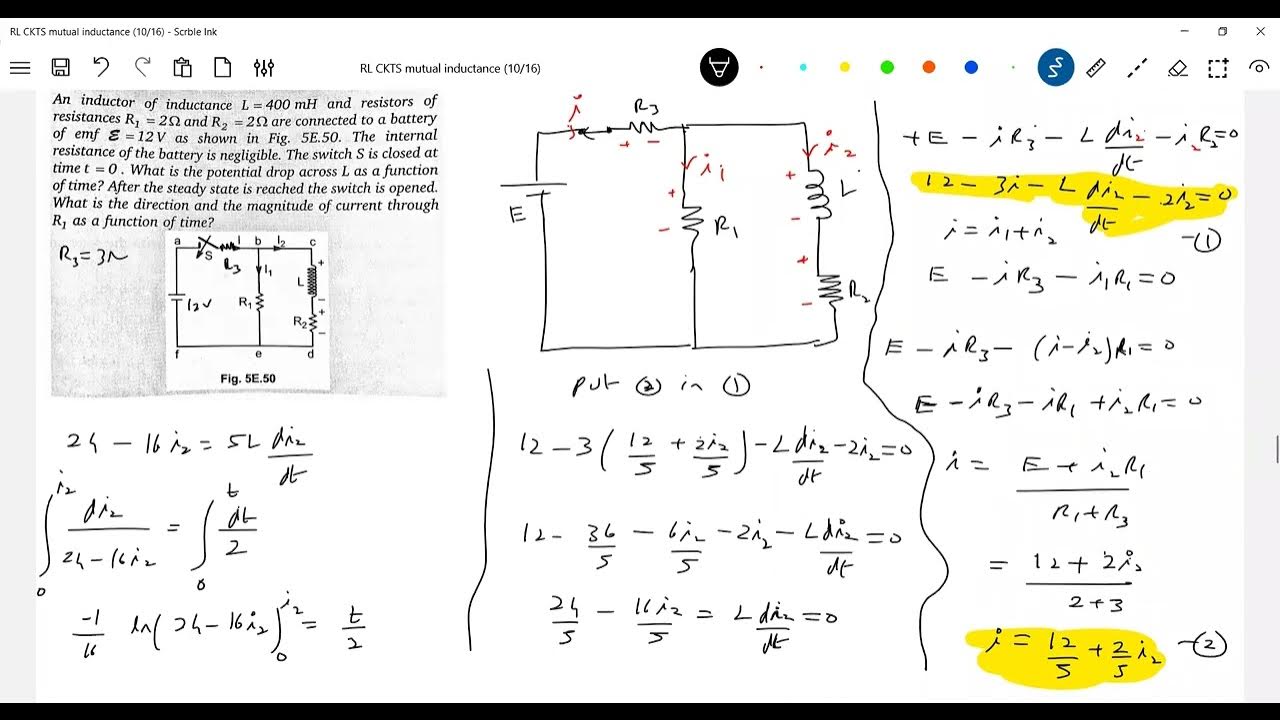 RL CKTS mutual inductance (10/16) - Scrble Ink
RL CKTS mutual inductance (10/16)
An inductor of inductance L = 400 mH and resistors of
resistances R₁ = 2Ω and R₂ = 2Ω are connected to a battery
of emf ℰ = 12 V as shown in Fig. 5E.50. The internal
resistance of the battery is negligible. The switch S is closed at
time t = 0. What is the potential drop across L as a function
of time? After the steady state is reached the switch is opened.
What is the direction and the magnitude of current through
R₁ as a function of time?
R₃ = 3Ω
a S I b I₂ c
R₃ I₁
12V R₁ L + −
R₂ + −
f e d
Fig. 5E.50
24 − 16i₂ = 5L di₂/dt
∫₀^i₂ di₂/(24 − 16i₂) = ∫₀^t dt/2
−1/16 ln(24 − 16i₂)]₀^i₂ = t/2
i R₃
+ −
i₁ i₂
E + − R₁ + − L
+ − R₂
put ② in ①
12 − 3(12/5 + 2i₂/5) − L di₂/dt − 2i₂ = 0
12 − 36/5 − 6i₂/5 − 2i₂ − L di₂/dt = 0
24/5 − 16i₂/5 = L di₂/dt = 0
+E − iR₃ − L di₂/dt − i₂R₂ = 0
12 − 3i − L di₂/dt − 2i₂ = 0
i = i₁ + i₂ −①
E − iR₃ − i₁R₁ = 0
E − iR₃ − (i − i₂)R₁ = 0
E − iR₃ − iR₁ + i₂R₁ = 0
i = (E + i₂R₁)/(R₁ + R₃)
= (12 + 2i₂)/(2 + 3)
i = 12/5 + 2/5 i₂ −②